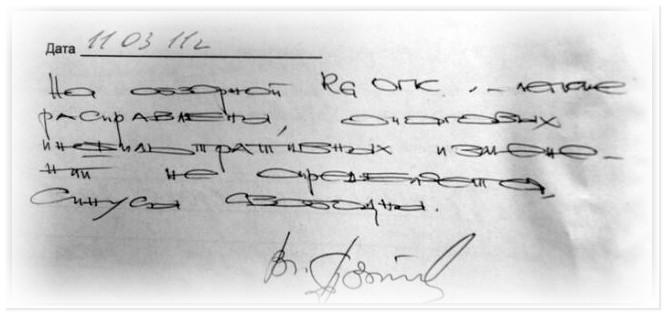 Дата 11 03 11г
На обзорной RG ОГК - легкие
расправлены, очаговых
инфильтративных измене-
ний не определяется,
Синусы свободны.
Вр.